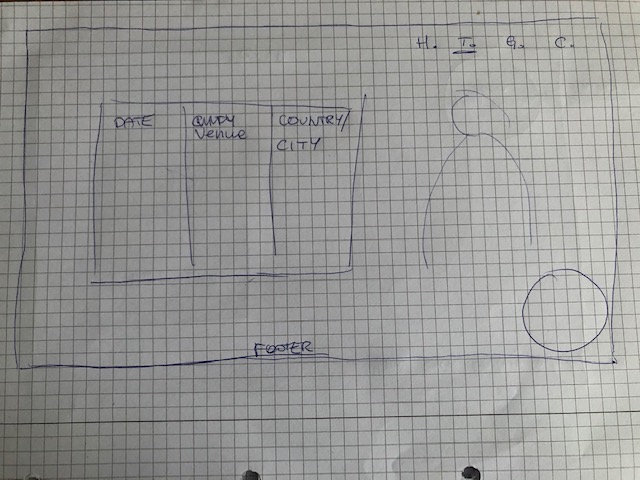 H. T. G. C.
DATE
Venue
COUNTRY/
CITY
FOOTER